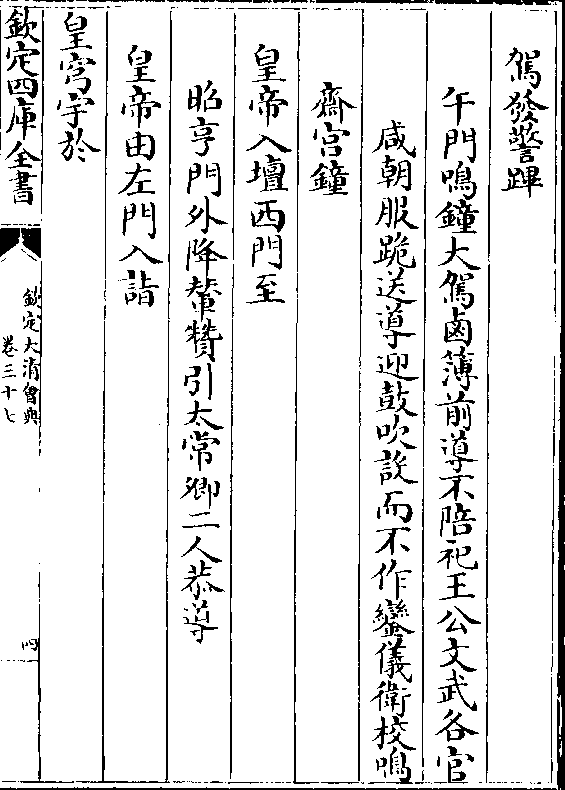 駕發警蹕
午門鳴鐘大駕鹵簿前導不陪祀王公文武各官
咸朝服跪送導迎鼓吹設而不作鑾儀衛校鳴
齋宫鐘
皇帝入壇西門至
昭亨門外降輦贊引太常卿二人恭導
皇帝由左門入詣
皇穹宇於
欽定四庫全書
欽定大清會典
卷三十七
四